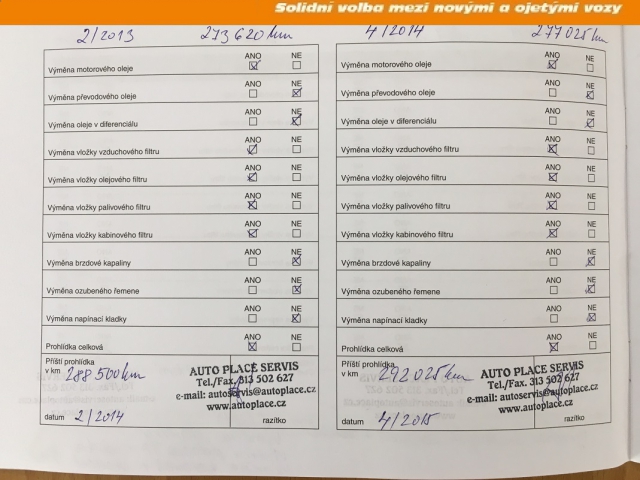 Solidní volba mezi novými a ojetými vozy
2/2013 273 620 km
ANO NE
Výměna motorového oleje
ANO NE
Výměna převodového oleje
ANO NE
Výměna oleje v diferenciálu
ANO NE
Výměna vložky vzduchového filtru
ANO NE
Výměna vložky olejového filtru
ANO NE
Výměna vložky palivového filtru
ANO NE
Výměna vložky kabinového filtru
ANO NE
Výměna brzdové kapaliny
ANO NE
Výměna ozubeného řemene
ANO NE
Výměna napínací kladky
ANO NE
Prohlídka celková
Příští prohlídka
v km 288 500 km
datum 2/2014
AUTO PLACE SERVIS
Tel./Fax. 313 502 627
e-mail: autoservis@autoplace.cz
www.autoplace.cz
razítko
4/2014 277 025 km
ANO NE
Výměna motorového oleje
ANO NE
Výměna převodového oleje
ANO NE
Výměna oleje v diferenciálu
ANO NE
Výměna vložky vzduchového filtru
ANO NE
Výměna vložky olejového filtru
ANO NE
Výměna vložky palivového filtru
ANO NE
Výměna vložky kabinového filtru
ANO NE
Výměna brzdové kapaliny
ANO NE
Výměna ozubeného řemene
ANO NE
Výměna napínací kladky
ANO NE
Prohlídka celková
Příští prohlídka
v km 292 025 km
datum 4/2015
AUTO PLACE SERVIS
Tel./Fax. 313 502 627
e-mail: autoservis@autoplace.cz
www.autoplace.cz
razítko